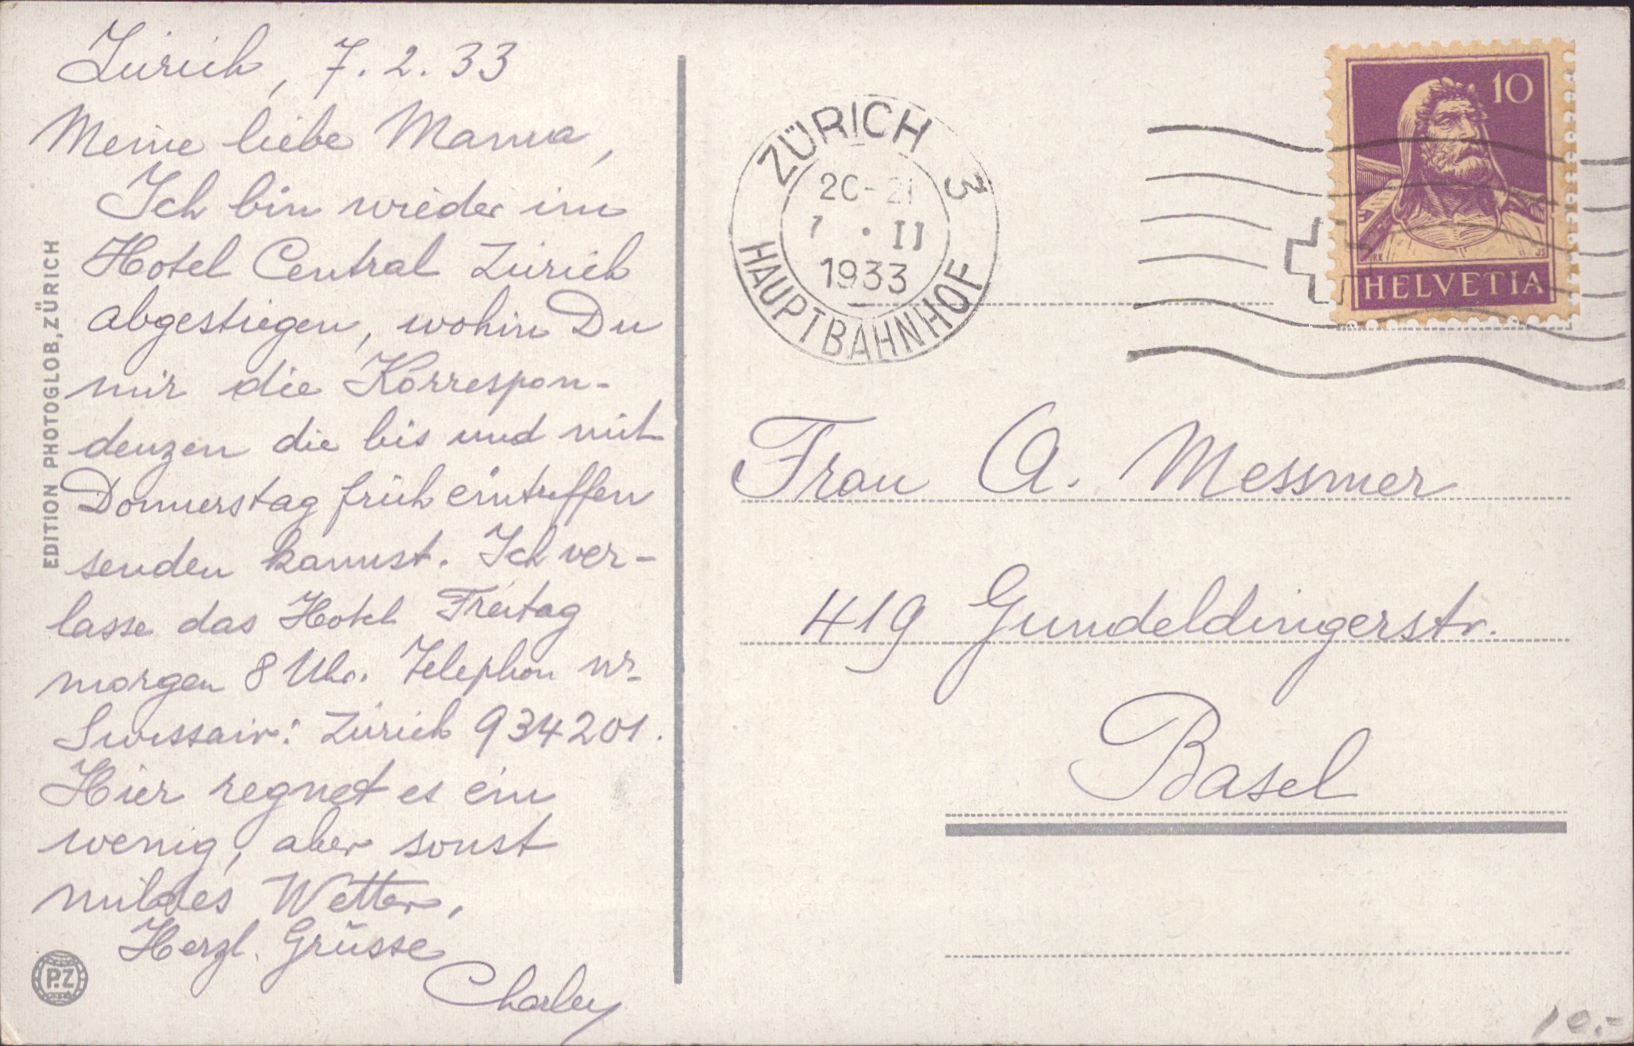 Zürich, 7. 2. 33
Meine liebe Mama,
Ich bin wieder im
Hotel Central Zürich
abgestiegen, wohin Du
mir die Korrespon-
denzen die bis und mit
Donnerstag früh eintreffen
senden kannst. Ich ver-
lasse das Hotel Freitag
morgen 8 Uhr. Telephon nr.
Swissair: Zürich 934201.
Hier regnet es ein
wenig, aber sonst
mildes Wetter.
Herzl. Grüsse
Charley
EDITION PHOTOGLOB, ZÜRICH
P.Z
ZÜRICH 3
20-21
7 . II
1933
HAUPTBAHNHOF
10
HELVETIA
Frau A. Messmer
419 Gundeldingerstr.
Basel
10.-